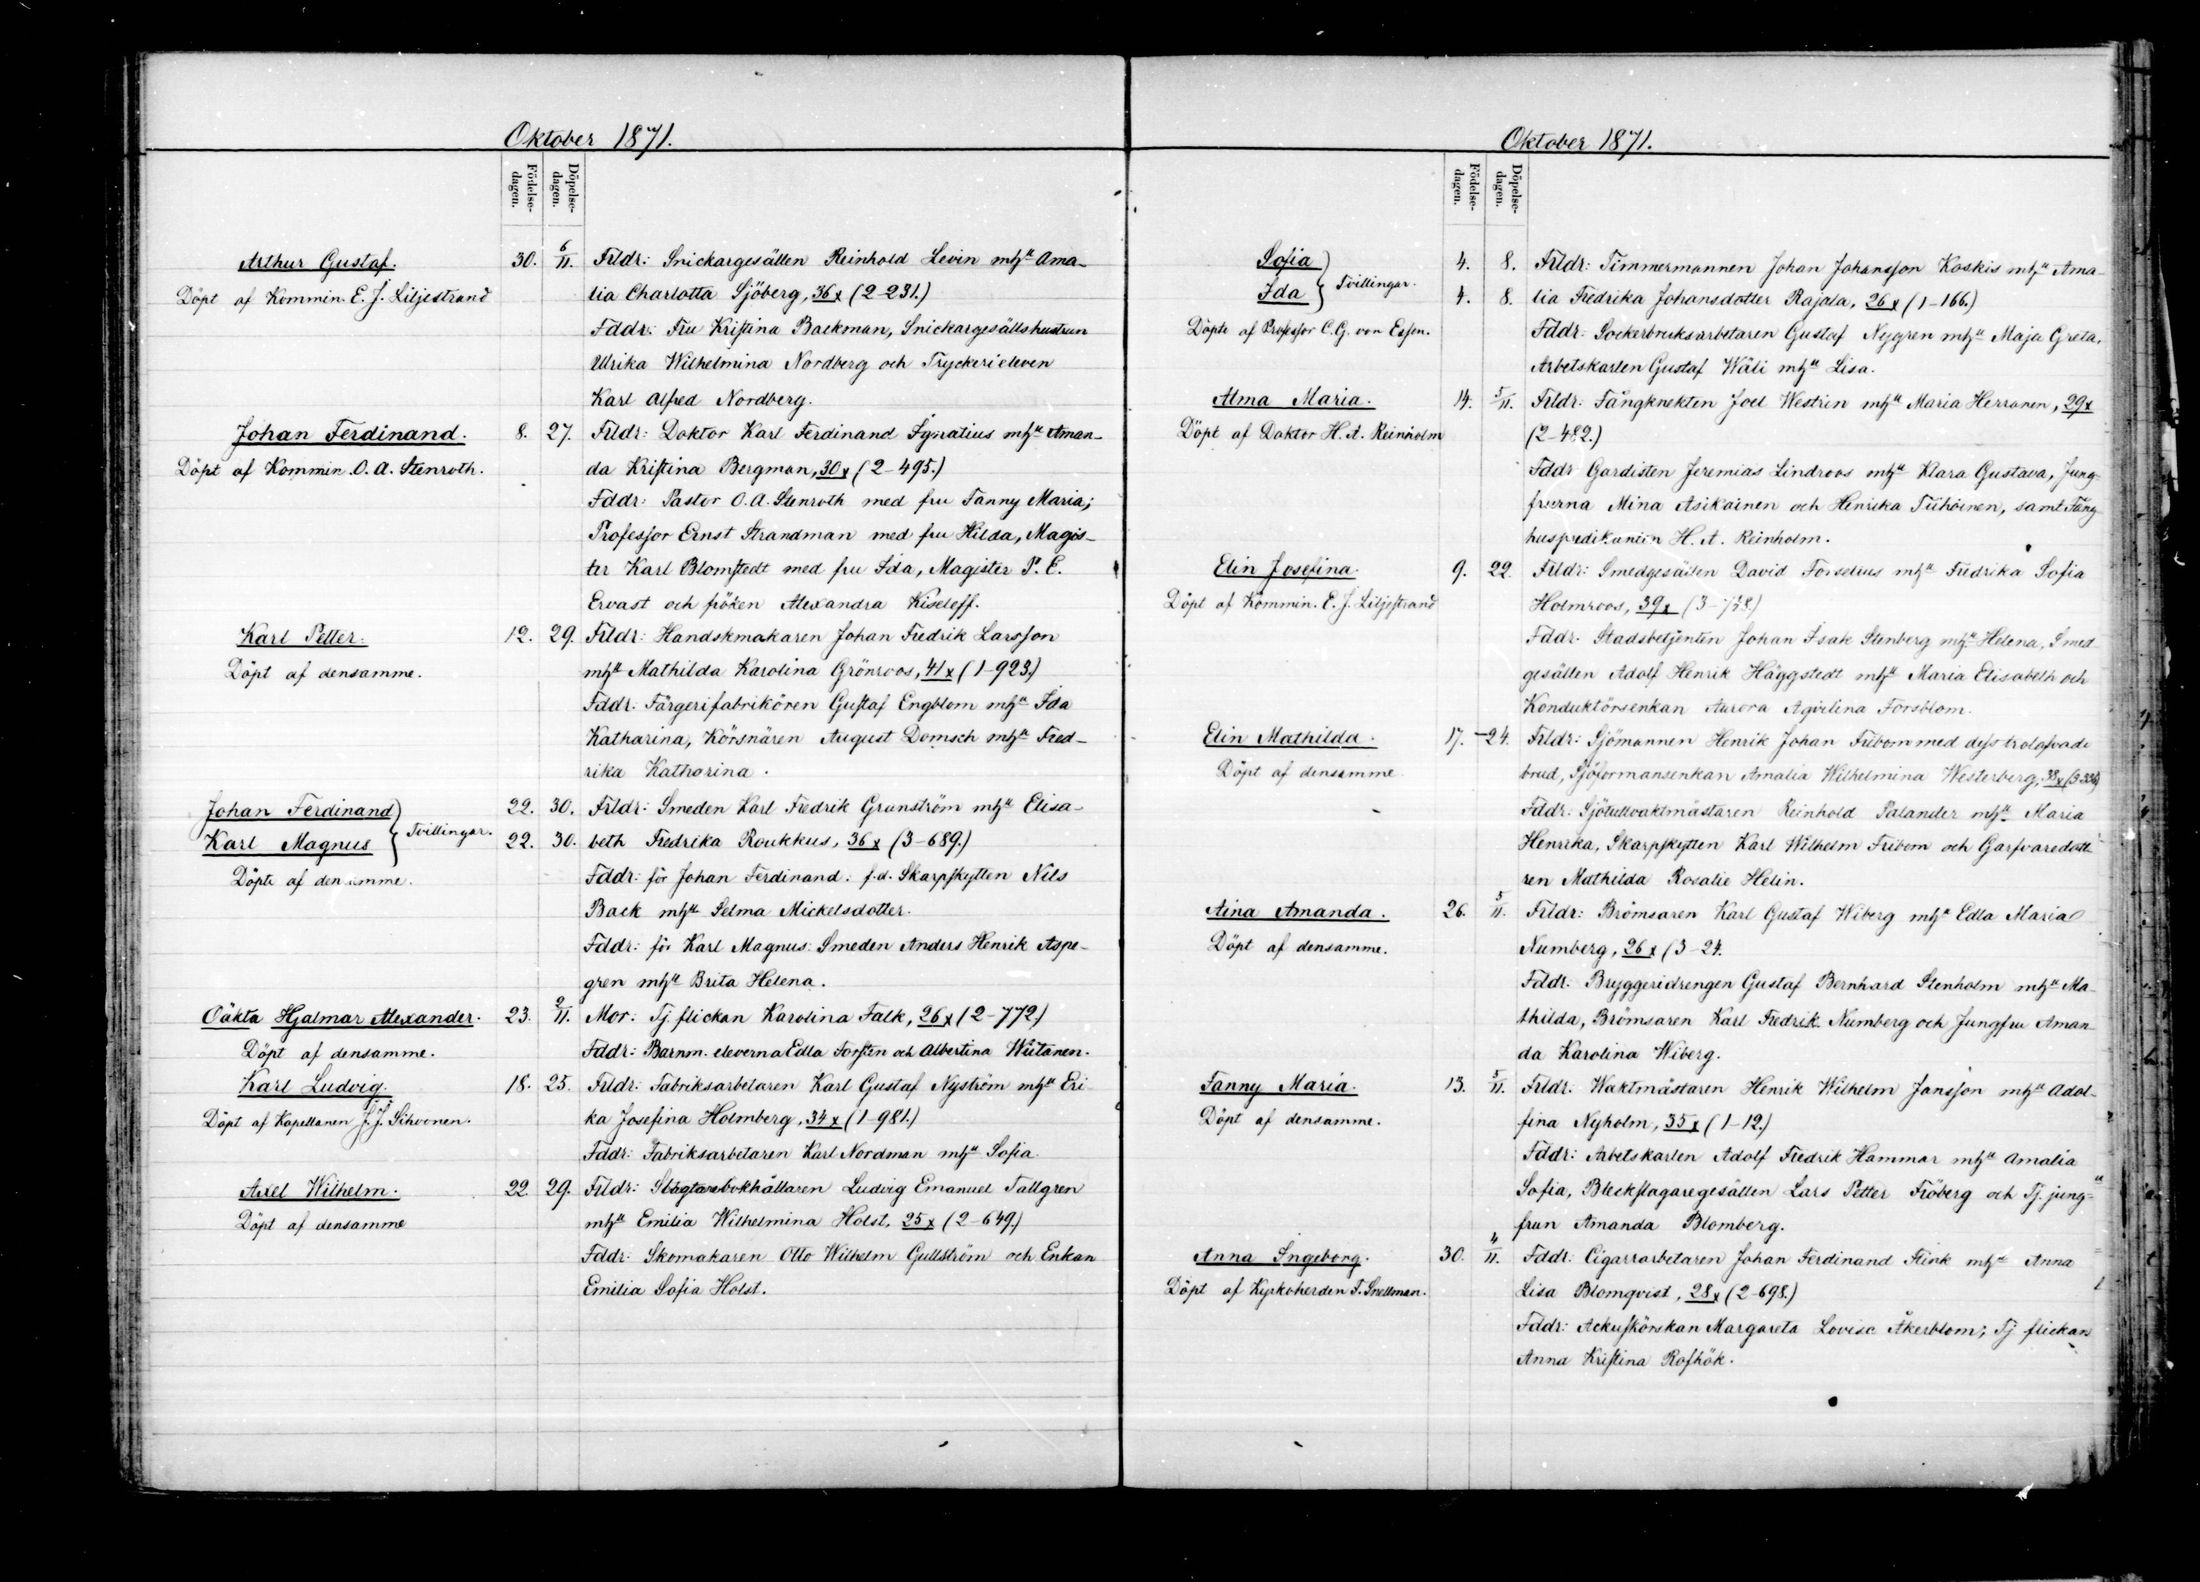 Oktober 1871.
Födelse-dagen.
Döpelse-dagen.
Arthur Gustaf. 30. 6/11. Frldr: Snickargesällen Reinhold Levin mhu Ama-
Döpt af Kommin. E. J. Liljestrand lia Charlotta Sjöberg, 36 x (2-231.)
Fddr: Fru Kristina Backman, Snickargesällshustrun
Ulrika Wilhelmina Nordberg och Tryckerieleven
Karl Alfred Nordberg.
Johan Ferdinand. 8. 27. Frldr: Doktor Karl Ferdinand Ignatius mhu Aman-
Döpt af Kommin. O. A. Stenroth. da Kristina Bergman, 30 x (2-495.)
Fddr: Pastor O. A. Stenroth med fru Fanny Maria;
Professor Ernst Strandman med fru Hilda, Magis-
ter Karl Blomstedt med fru Ida, Magister P. E.
Ervast och fröken Alexandra Kiseleff.
Karl Petter. 12. 29. Frldr: Handskmakaren Johan Fredrik Larsson
Döpt af densamme. mhu Mathilda Karolina Grönroos, 41 x (1-923.)
Fddr: Färgerifabrikören Gustaf Engblom mhu Ida
Katharina, Körsnären August Domsch mhu Fred-
rika Katharina.
Johan Ferdinand 22. 30. Frldr: Smeden Karl Fredrik Granström mhu Elisa-
Karl Magnus } Tvillingar. 22. 30. beth Fredrika Roukkus, 36 x (3-689.)
Döpte af densamme. Fddr: för Johan Ferdinand: f.d. Skarpskytten Nils
Back mhu Selma Mickelsdotter.
Fddr: för Karl Magnus: Smeden Anders Henrik Aspe-
gren mhu Brita Helena.
Oäkta Hjalmar Alexander. 23. 2/11. Mor: Tj. flickan Karolina Falk, 26 x (2-772)
Döpt af densamme. Fddr: Barnm. eleverna Edla Forstén och Albertina Wiitanen.
Karl Ludvig. 18. 25. Frldr: Fabriksarbetaren Karl Gustaf Nyström mhu Eri-
Döpt af Kapellanen J. J. Sihvonen. ka Josefina Holmberg, 34 x (1-981.)
Fddr: Fabriksarbetaren Karl Nordman mhu Sofia.
Axel Wilhelm. 22. 29. Frldr: Slagtarebokhållaren Ludvig Emanuel Tallgren
Döpt af densamme mhu Emilia Wilhelmina Holst, 25 x (2-649.)
Fddr: Skomakaren Otto Wilhelm Gullström och Enkan
Emilia Sofia Holst.
Oktober 1871.
Födelse-dagen.
Döpelse-dagen.
Sofia 4. 8. Frldr: Timmermannen Johan Johansson Koskis mhu Ama-
Ida } Tvillingar. 4. 8. lia Fredrika Johansdotter Rajala, 26 x (1-166.)
Döpte af Professor C. G. von Essen. Fddr: Sockerbruksarbetaren Gustaf Nygren mhu Maja Greta,
Arbetskarlen Gustaf Wäli mhu Lisa.
Alma Maria. 14. 5/11. Frldr: Fångknekten Joel Westrin mhu Maria Herranen, 29 x
Döpt af Doktor H. A. Reinholm (2-482.)
Fddr Gardisten Jeremias Lindroos mhu Klara Gustava, Jung-
fruerna Mina Asikainen och Henrika Tiihoinen, samt Fång-
huspredikanten H. A. Reinholm.
Elin Josefina. 9. 22. Frldr: Smedgesällen David Forselius mhu Fredrika Sofia
Döpt af Kommin. E. J. Liljestrand Holmroos, 39 x
Fddr: Stadsbetjenten Johan Isak Stenberg mhu Helena, Smed-
gesällen Adolf Henrik Häggstedt mhu Maria Elisabeth och
Konduktörsenkan Aurora Aqvilina Forsblom.
Elin Mathilda. 17. 24. Frldr: Sjömannen Henrik Johan Fribom med dess trolofvade
Döpt af densamme brud, Sjöformansenkan Amalia Wilhelmina Westerberg, 38 x
Fddr: Sjötullvaktmästaren Reinhold Palander mhu Maria
Henrika, Skarpskytten Karl Wilhelm Fribom och Garfvaredott-
ren Mathilda Rosalie Helin.
Aina Amanda. 26. 5/11. Frldr: Brömsaren Karl Gustaf Wiberg mhu Edla Maria
Döpt af densamme. Numberg, 26 x (3-24.
Fddr: Bryggeridrengen Gustaf Bernhard Stenholm mhu Ma-
thilda, Brömsaren Karl Fredrik Numberg och Jungfru Aman-
da Karolina Wiberg.
Fanny Maria. 13. 5/11. Frldr: Waktmästaren Henrik Wilhelm Jansson mhu Adol-
Döpt af densamme. fina Nyholm, 35 x (1-12.)
Fddr: Arbetskarlen Adolf Fredrik Hammar mhu Amalia
Sofia, Bleckslagaregesällen Lars Petter Fröberg och Tj. jung-
frun Amanda Blomberg.
Anna Ingeborg. 30. 4/11. Fddr: Cigarrarbetaren Johan Ferdinand Flink mhu Anna
Döpt af Kyrkoherden F. Snellman. Lisa Blomqvist, 28 x (2-698.)
Fddr: Ackuskörskan Margareta Lovisa Åkerblom; Tj flickan
Anna Kristina Rofhök.